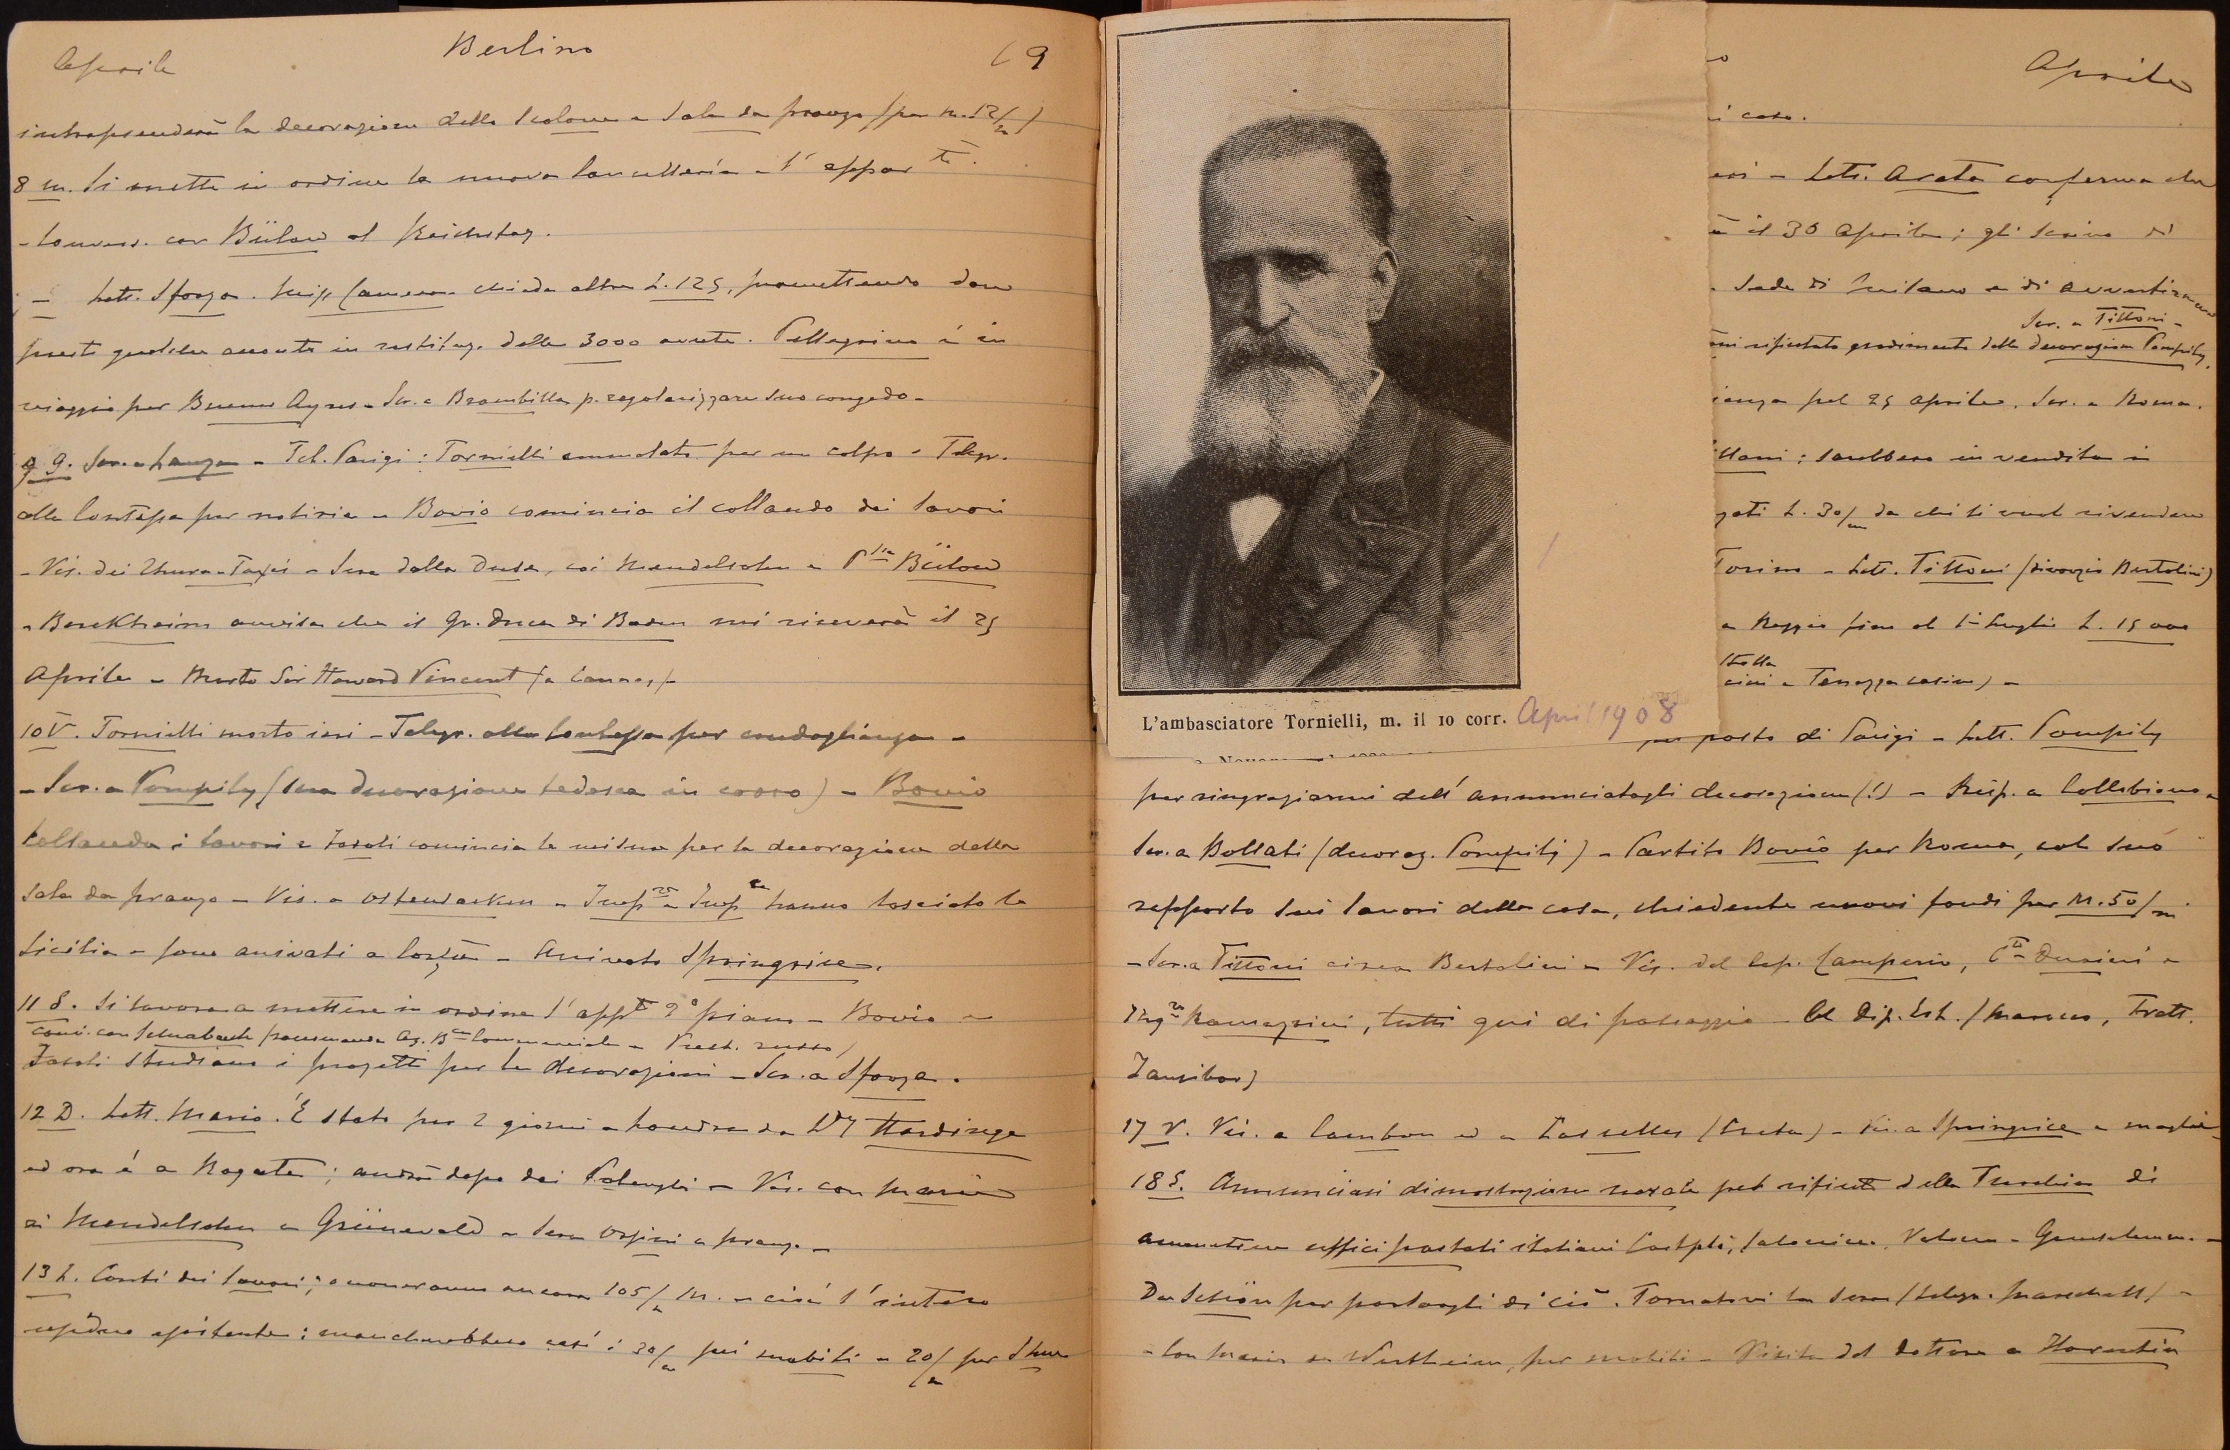 Aprile
Berlino
69
intraprenderà la decorazione dello scalone e Sala da pranzo (per m. 12/m)
8 M. Si mette in ordine la nuova Cancelleria e l'appar.to
- Convers. con Bülow al Reichstag.
- Lett. Sforza. chiede altre L. 125, promettendo
presto qualche acconto in restituz. delle 3000 avute. Pellegrino è in
viaggio per Buenos Ayres - Scr. a Brambilla p. regolarizzare suo congedo -
9 G. Scr. a Lanza - Tel. Parigi: Tornielli ammalato per un colpo - Telegr.
alla Contessa per notizie - Bovio comincia il collaudo dei lavori
- Vis. dei Thurn-Taxis - Sera dalla Dusa, coi Mendelsohn e P.ssa Bülow
- Berckheim avvisa che il Gr. Duca di Baden mi riceverà il 25
Aprile - Morto Sir Howard Vincent (a Cannes) -
10 V. Tornielli morto ieri - Telegr. alla Contessa per condoglianza -
- Scr. a Pompilj (sua decorazione tedesca in corso) - Bovio
collauda i lavori e Zasoli comincia le misure per la decorazione della
sala da pranzo - Vis. a Ostensacken - Imp.re e Imp.ce hanno lasciato la
Sicilia e sono arrivati a Corfù - Arrivato Springrice.
11 S. Si lavora a mettere in ordine l'app.to 2° piano - Bovio e
Conv. con Schwabach (raccomanda Az. B.ca Commerciale - Prest. russo)
Zasoli studiano i progetti per le decorazioni - Scr. a Sforza.
12 D. Lett. Mario. È stato per 2 giorni a Londra da Dy Hardinge
ed ora è a Rogate; andrà dopo dai - Vis. con Maria
ai Mendelsohn a Grünewald - Sera Orsini a pranzo -
13 L. Conti dei lavori; occorreranno ancora 105/m M. - cioè l'intero
residuo esistente: mancherebbero così i 30/m pei mobili e 20/m per
Aprile
i casa.
- Lett. Arata conferma che
il 30 Aprile; gli scrivo di
Sede di Milano e di avvertirmene
Scr. a Tittoni -
rifiutato gradimento della decorazione Pompilj.
pel 25 Aprile. Scr. a Roma.
: sarebbero in vendita a
L. 30/m da chi li vuol rivendere
Torino - Lett. Tittoni (divorzio Bertolini)
a Reggio fino al 1° Luglio L. 15000
Terrazza casino) -
L'ambasciatore Tornielli, m. il 10 corr. April 1908
posto di Parigi - Lett. Pompilj
per ringraziarmi dell'annunciatagli decorazione (!) - Risp. a Collobiano -
Scr. a Bollati (decoraz. Pompilj) - Partito Bovio per Roma, col suo
rapporto sui lavori della casa, chiedente nuovi fondi per M. 50/m
- Scr. a Tittoni circa Bertolini - Vis. del Cap. Camperio, C.te Durini e
Ing.re Ramazzini, tutti qui di passaggio - Al Dip. Est. (Marocco, Tratt.
Zanzibar)
17 V. Vis. a Cambon ed a Lascelles (Creta) - Vis. a Springrice e moglie -
18 S. Annunciasi dimostrazione navale pel rifiuto della Turchia di
ammettere uffici postali italiani Costpli, Salonicco, Valona - Gerusalemme. -
Da Schön per parlargli di ciò. Tornatovi la sera (telegr. Marschall) -
- Con Maria da Wertheim, per mobili - Visita del dottore a Florentin